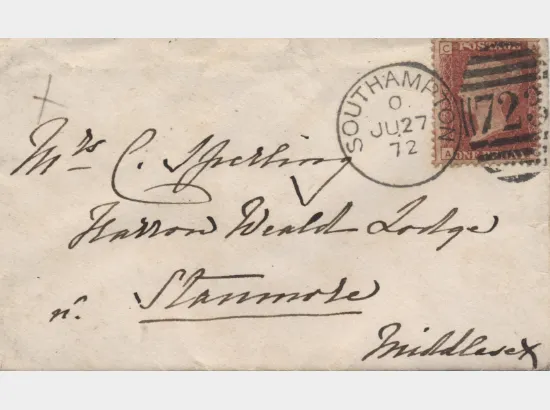 C POSTAGE
SOUTHAMPTON
O
JU 27
72
72
A ONE
Mrs C. Sperling
Harrow Weald Lodge
nr. Stanmore
Middlesex